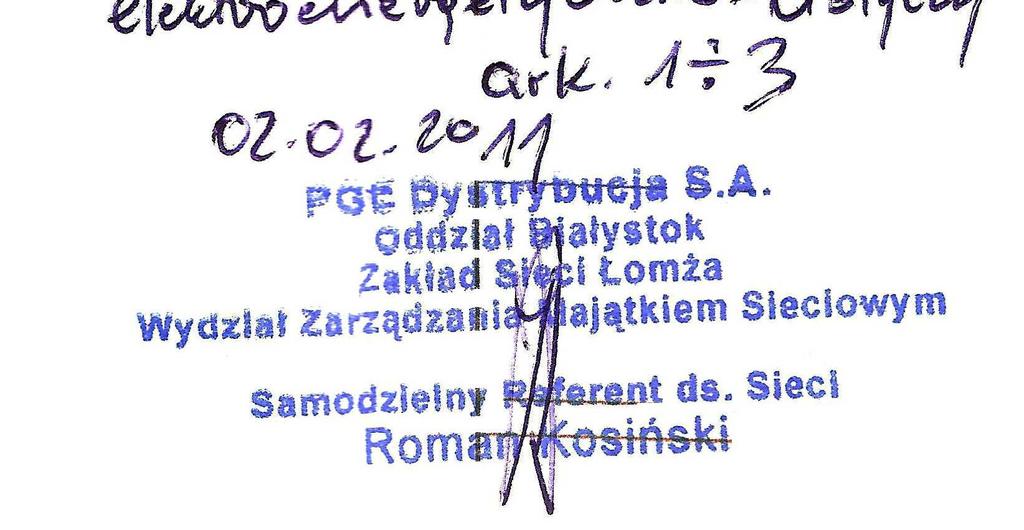 ark. 1÷3
02.02.2011
PGE Dystrybucja S.A.
Oddział Białystok
Zakład Sieci Łomża
Wydział Zarządzania Majątkiem Sieciowym
Samodzielny Referent ds. Sieci
Roman Kosiński